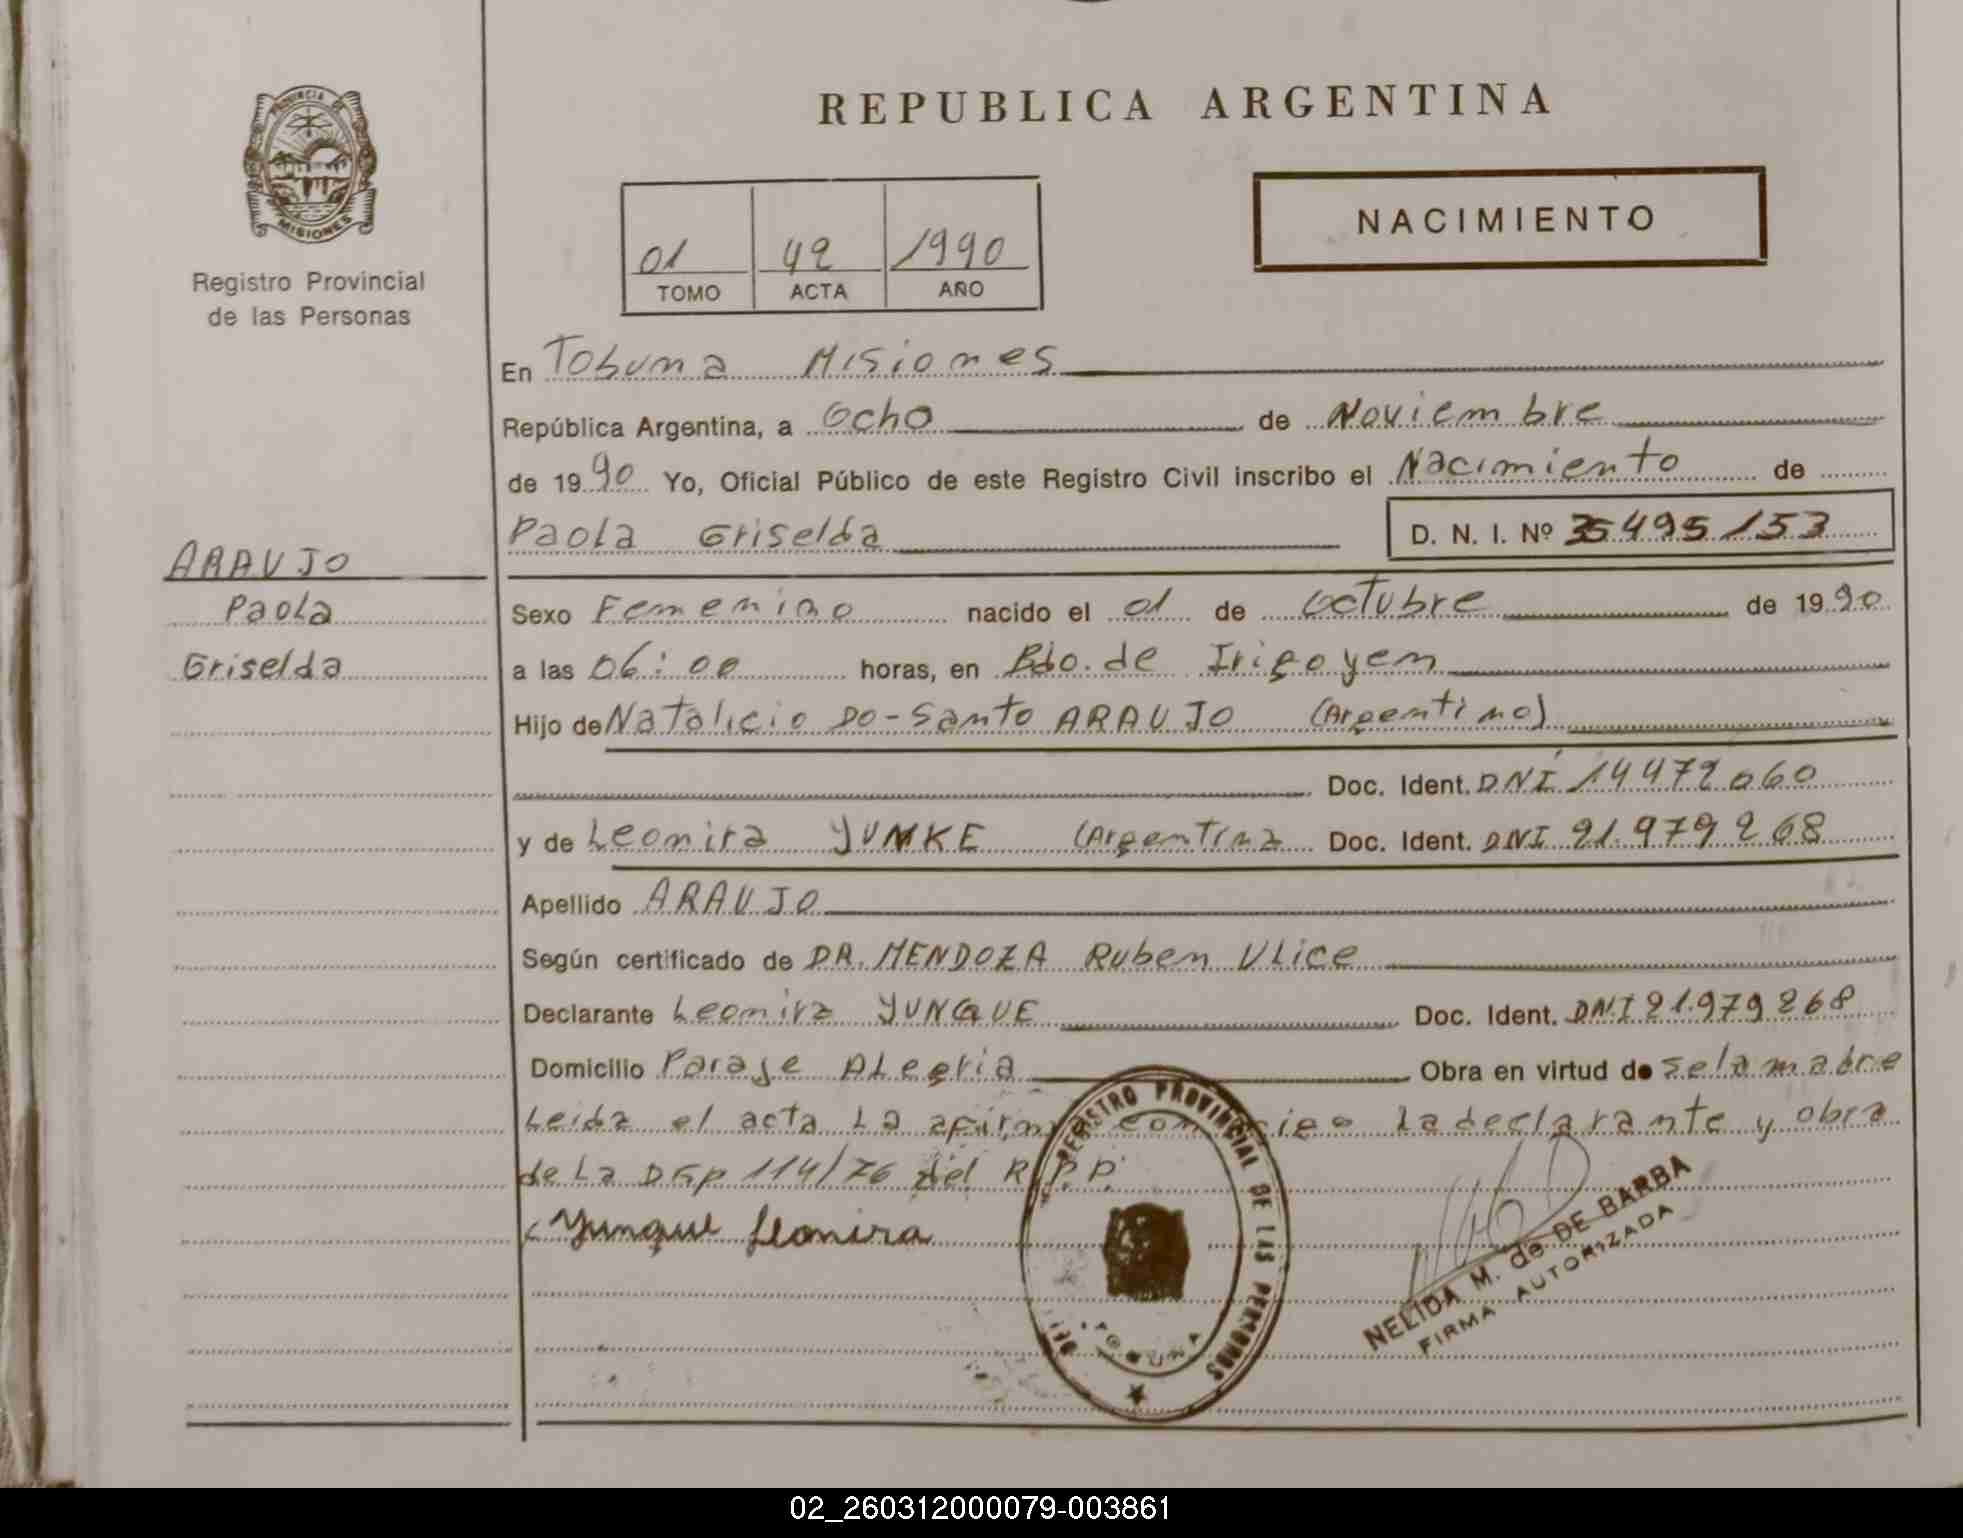 PROVINCIA DE
MISIONES
Registro Provincial
de las Personas
REPUBLICA ARGENTINA
NACIMIENTO
01 42 1990
TOMO ACTA AÑO
En Tobuna Misiones
República Argentina, a Ocho de Noviembre
de 1990 Yo, Oficial Público de este Registro Civil inscribo el Nacimiento de
Paola Griselda D. N. I. Nº 35495153
ARAUJO
Paola
Griselda
Sexo Femenino nacido el 01 de Octubre de 1990
a las 06:00 horas, en Bdo. de Irigoyen
Hijo de Natalicio DO-Santo ARAUJO (Argentino)
Doc. Ident. DNI 14472060
y de Leonira YUNKE (Argentina Doc. Ident. DNI 21.979268
Apellido ARAUJO
Según certificado de DR. MENDOZA Ruben Ulice
Declarante Leonira YUNQUE Doc. Ident. DNI 21.979268
Domicilio Paraje ALegria Obra en virtud de se la madre
Leida el acta La declarante y obra
de La DGP 114/76 del R.P.P.
Yunque Leonira
REGISTRO PROVINCIAL DE LAS PERSONAS
TOBUNA
NELIDA M. de DE BARBA
FIRMA AUTORIZADA
02_260312000079-003861